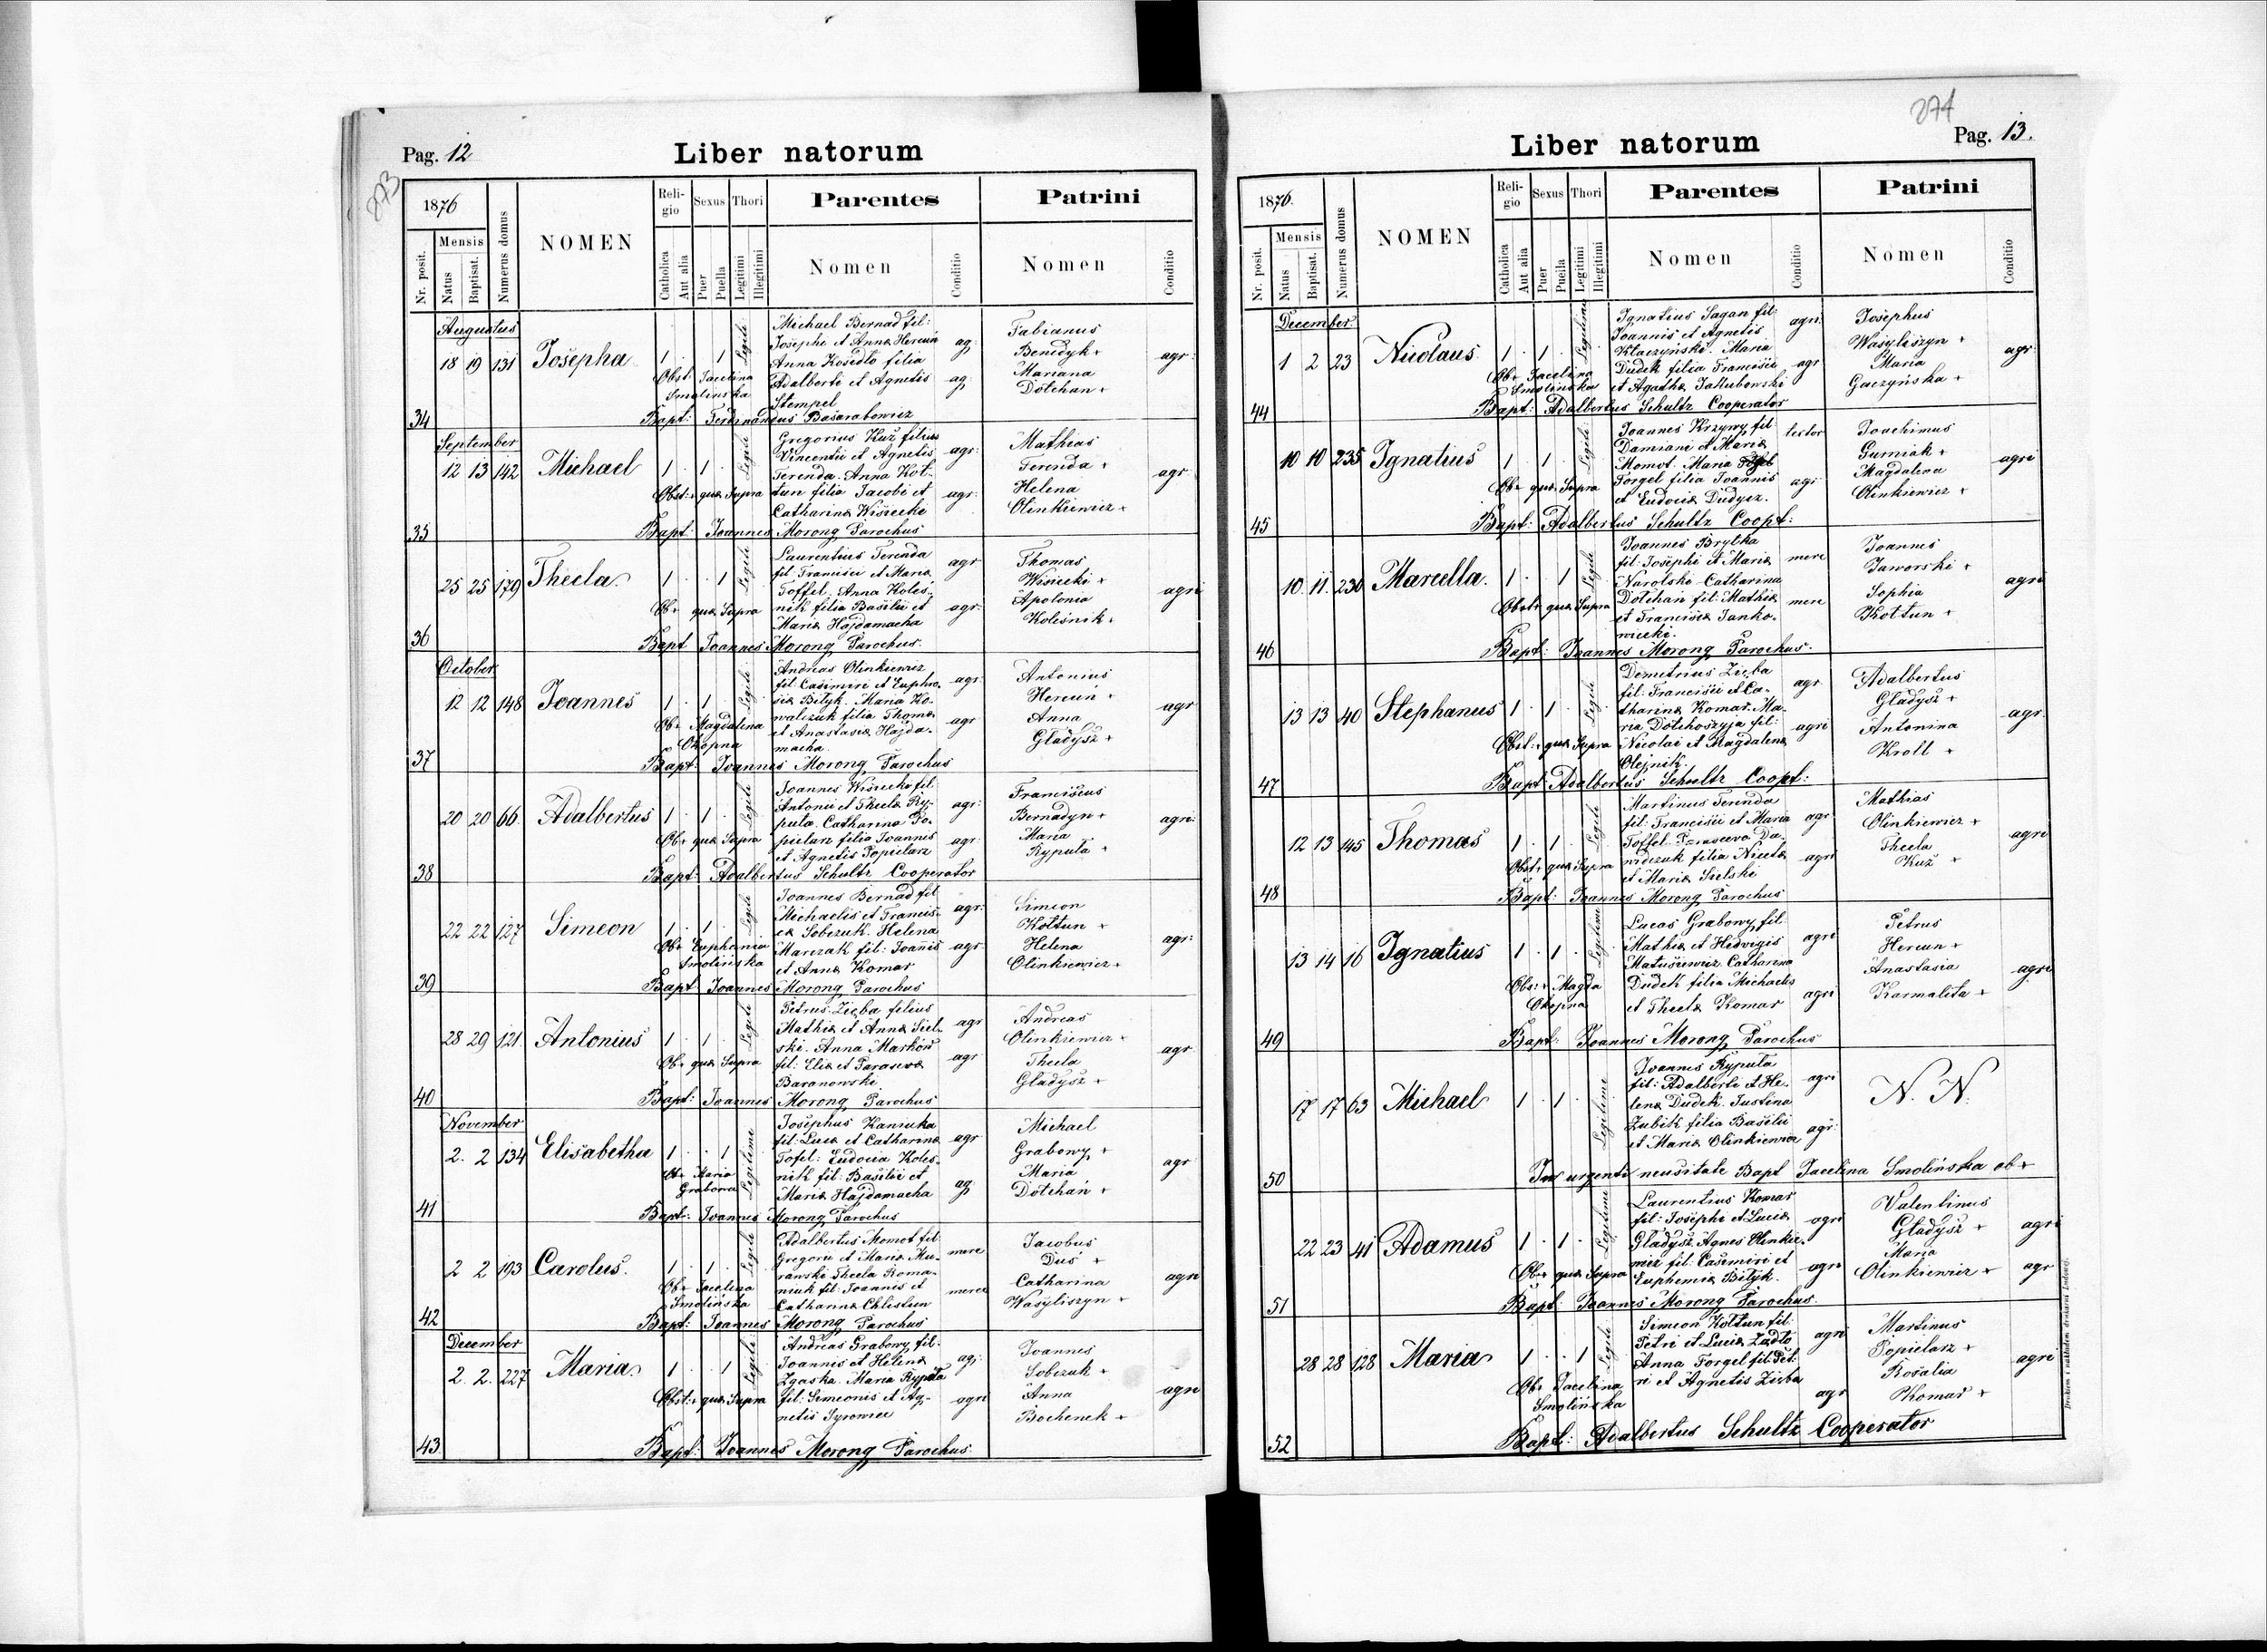 273
Pag. 12
Liber natorum
1876
Mensis
Nr. posit.
Natus
Baptisat.
Numerus domus
NOMEN
Religio
Catholica
Aut alia
Sexus
Puer
Puella
Thori
Legitimi
Illegitimi
Parentes
Nomen
Conditio
Patrini
Nomen
Conditio
Augustus
34 18 19 131 Josepha 1 1 Legiti
Michael Bernad fil:
Josephi et Anna Hercuń
Anna Kosedło filia
Adalberti et Agnetis
Stempel
ag: ag:
Fabianus
Benedyk +
Mariana
Dołchan +
agr:
Obst: Jacelina
Smolinska
Bapt: Ferdinandus Basarabowicz
September
35 12 13 142 Michael 1 1 Legiti
Gregorius Kuź filius
Vincentii et Agnetis
Terenda. Anna Koł-
tun filia Jacobi et
Catharina Wisiecki
agr: agr:
Mathias
Terenda +
Helena
Olinkiewicz +
agr
Obst: + quæ Supra
Bapt: Joannes Morong Parochus
36 25 25 179 Thecla 1 1 Legiti
Laurentius Terenda
fil: Francisci et Maria
Toffel. Anna Koleś-
nik filia Basilii et
Maria Hajdamacha
agr agr:
Thomas
Wisiecki +
Apolonia
Kolesnik +
agri
Ob + quæ Supra
Bapt Joannes Morong Parochus
October
37 12 12 148 Joannes 1 1 Legiti
Andreas Olinkiewicz
fil: Casimiri et Euphro-
sia Bityk. Maria Ko-
walczuk filia Thoma
et Anastasia Hajda-
macha
agr: agr
Antonius
Hercuń +
Anna
Gładysz +
agr
Ob + Magdalena
Okopna
Bapt: Joannes Morong Parochus
38 20 20 66 Adalbertus 1 1 Legiti
Joannes Wisiecki fil:
Antonii et Thecla Ry-
puta. Catharina Po-
pielarz filia Joannis
et Agnetis Popielarz
agr: agr:
Franciscus
Bernadyn +
Maria
Ryputa +
agri:
Ob + quæ Supra
Bapt: Adalbertus Schultz Cooperator
39 22 22 127 Simeon 1 1 Legiti
Joannes Bernad fil
Michaelis et Francis-
ca Sobczuk. Helena
Marczak fil: Joannis
et Anna Komar
agr: agr:
Simeon
Kołtun +
Helena
Olinkiewicz +
agr:
Ob + Euphemia
Smolińska
Bapt Joannes Morong Parochus
40 28 29 121 Antonius 1 1 Legiti
Petrus Zięba filius
Mathia et Anna Siel-
ski. Anna Markow
fil: Elia et Parasewa
Baranowski
agr agr
Andreas
Olinkiewicz +
Thecla
Gładysz +
agr
Ob + quæ Supra
Bapt: Joannes Morong Parochus
November
41 2. 2 134 Elisabetha 1 1 Legitime
Josephus Kaniuka
fil: Luca et Catharina
Tofel: Eudocia Koles-
nik fil: Basilii et
Maria Hajdamacha
agr ag
Michael
Grabowy +
Maria
Dołchań +
agr
Ob + Maria
Grabowa
Bapt: Joannes Morong Parochus
42 2 2 193 Carolus. 1 1 Legiti
Adalbertus Momot fil
Gregorii et Maria Mu-
ranski Thecla Roma-
niuk fil: Joannis et
Catharina Chlistun
merc merce
Jacobus
Duś +
Catharina
Wasyliszyn +
agri
Ob + Jacelina
Smolińska
Bapt: Joannes Morong Parochus
December
43 2. 2. 227 Maria 1 1 Legiti
Andreas Grabowy fil:
Joannis et Helena
Zgaska. Maria Ryputa
fil: Simeonis et Ag-
netis Syrowiec
agr: agri
Joannes
Sobczuk +
Anna
Bochenek +
agri
Obst: + quæ Supra
Bapt: Joannes Morong Parochus
274
Liber natorum
Pag. 13.
1876.
Mensis
Nr. posit.
Natus
Baptisat.
Numerus domus
NOMEN
Religio
Catholica
Aut alia
Sexus
Puer
Puella
Thori
Legitimi
Illegitimi
Parentes
Nomen
Conditio
Patrini
Nomen
Conditio
December
44 1 2 23 Nicolaus 1 1 Legitime
Ignatius Sagan fil
Joannis et Agnetis
Kłaczyński. Maria
Dudek filia Francisci
et Agatha Jakubowski
agri agr
Josephus
Wasyliszyn +
Maria
Gaczyńska +
agr
Ob + Jacelina
Smolińska
Bapt: Adalbertus Schultz Cooperator
45 10 10 235 Ignatius 1 1 Legiti
Joannes Krzywy fil
Damiani et Maria
Momot. Maria
Forgel filia Joannis
et Eudocia Dudycz.
textor agr
Joachimus
Gurniak +
Magdalena
Olinkiewicz +
agri
Ob + quæ Supra
Bapt: Adalbertus Schultz Coopt:
46 10. 11. 230 Marcella. 1 1 Legiti
Joannes Brytka
fil: Josephi et Maria
Narolski Catharina
Dołchan fil: Mathia
et Francisca Janko-
wiecki.
merc merc
Joannes
Jaworski +
Sophia
Kołtun +
agri
Obst + quæ Supra
Bapt: Joannes Morong Parochus.
47 13 13 40 Stephanus 1 1 Legiti
Demetrius Zięba
fil: Francisci et Ca-
tharina Komar. Ma-
ria Dołchoszyja fil:
Nicolai et Magdalena
Olejnik.
agr agri
Adalbertus
Gładysz +
Antonina
Kroll +
agr.
Obst: + quæ Supra
Bapt: Adalbertus Schultz Coopt:
48 12 13 145 Thomas 1 1 Legiti
Martinus Terenda
fil: Francisci et Maria
Toffel. Parasewa Da-
widczuk filia Niceta
et Maria Sielski
agr agri
Mathias
Olinkiewicz +
Thecla
Kuź +
agri
Obst + quæ Supra
Bapt: Joannes Morong Parochus
49 13 14 16 Ignatius 1 1 Legitime
Lucas Grabowy fil:
Mathia et Hedvigis
Matusiewicz. Catharina
Dudek filia Michaelis
et Thecla Komar
agri agri
Petrus
Hercun +
Anastasia
Karmalita +
agri
Obs: + Magda
Okopna
Bapt: Joannes Morong Parochus
50 17 17 63 Michael 1 1 Legitime
Joannes Ryputa
fil: Adalberti et He-
lena Dudek. Justina
Zubik filia Basilii
et Maria Olinkiewicz
agri agr:
N. N.
In urgenti necesitate Bapt Jacelina Smolińska ob +
51 22 23 41 Adamus 1 1 Legitime
Laurentius Komar
fil: Josephi et Lucia
Gładysz. Agnes Olinkie-
wicz fil: Casimiri et
Euphemia Bityk.
agri agri
Valentinus
Gładysz +
Maria
Olinkiewicz +
agri agr
Ob + quæ Supra
Bapt: Joannes Morong Parochus.
52 28 28 128 Maria 1 1 Legiti
Simeon Kołtun fil:
Petri et Lucia Zadło
Anna Forgel fil: Pet-
ri et Agnetis Zięba
agri agr
Martinus
Popielarz +
Rosalia
Komar +
agri
Ob + Jacelina
Smolińska
Bapt: Adalbertus Schultz Cooperator